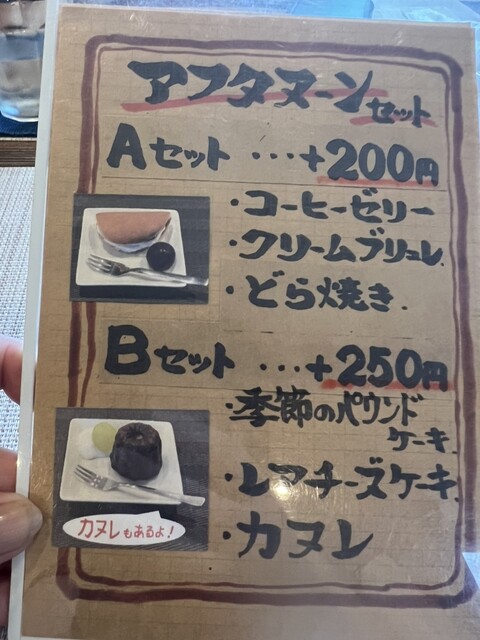 アフタヌーンセット
Aセット …+200円
・コーヒーゼリー
・クリームブリュレ.
・どら焼き.
Bセット …+250円
・季節のパウンド
ケーキ.
・レアチーズケーキ.
・カヌレ
カヌレもあるよ!